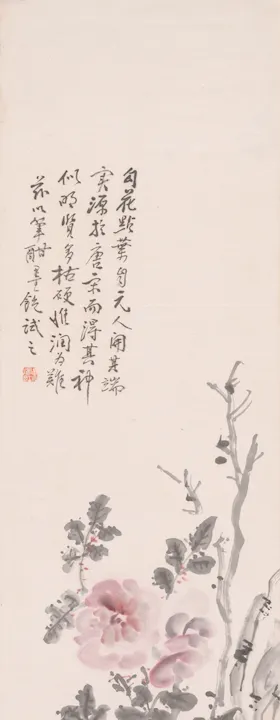 勾花點葉自元人開其端
實源於唐宋而得其神
似明賢多枯硬惟潤為難
茲以筆酣墨飽試之